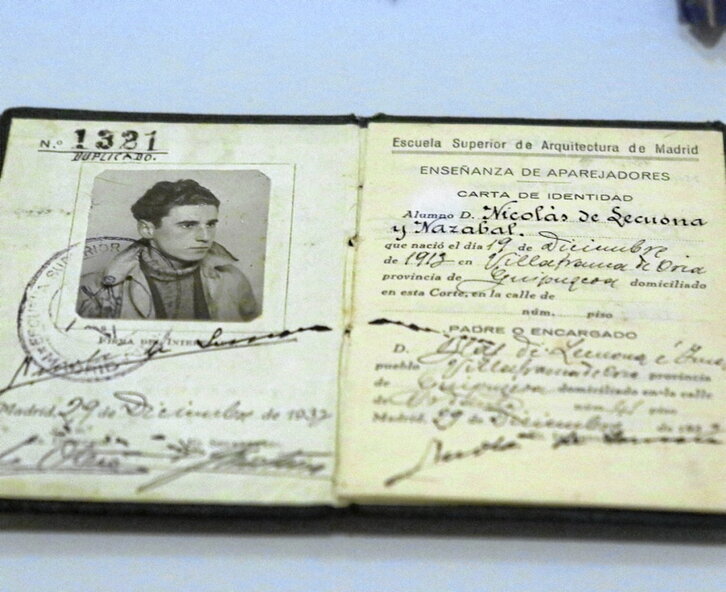 N.º 1321
DUPLICADO.
ESCUELA SUPERIOR
MADRID
FIRMA DEL INTERESADO
Nicolás de Lecuona
Madrid 29 de Diciembre de 1932
Escuela Superior de Arquitectura de Madrid
ENSEÑANZA DE APAREJADORES
CARTA DE IDENTIDAD
Alumno D. Nicolás de Lecuona
y Nazabal.
que nació el dia 19 de Diciembre
de 1913 en Villafranca de Oria
provincia de Guipuzcoa domiciliado
en esta Corte, en la calle de
núm. piso
PADRE O ENCARGADO
D. Blas de Lecuona é
pueblo Villafranca de Oria provincia
de Guipuzcoa domiciliado en la calle
de núm. 41 piso
Madrid 29 de Diciembre de
Nicolás de Lecuona